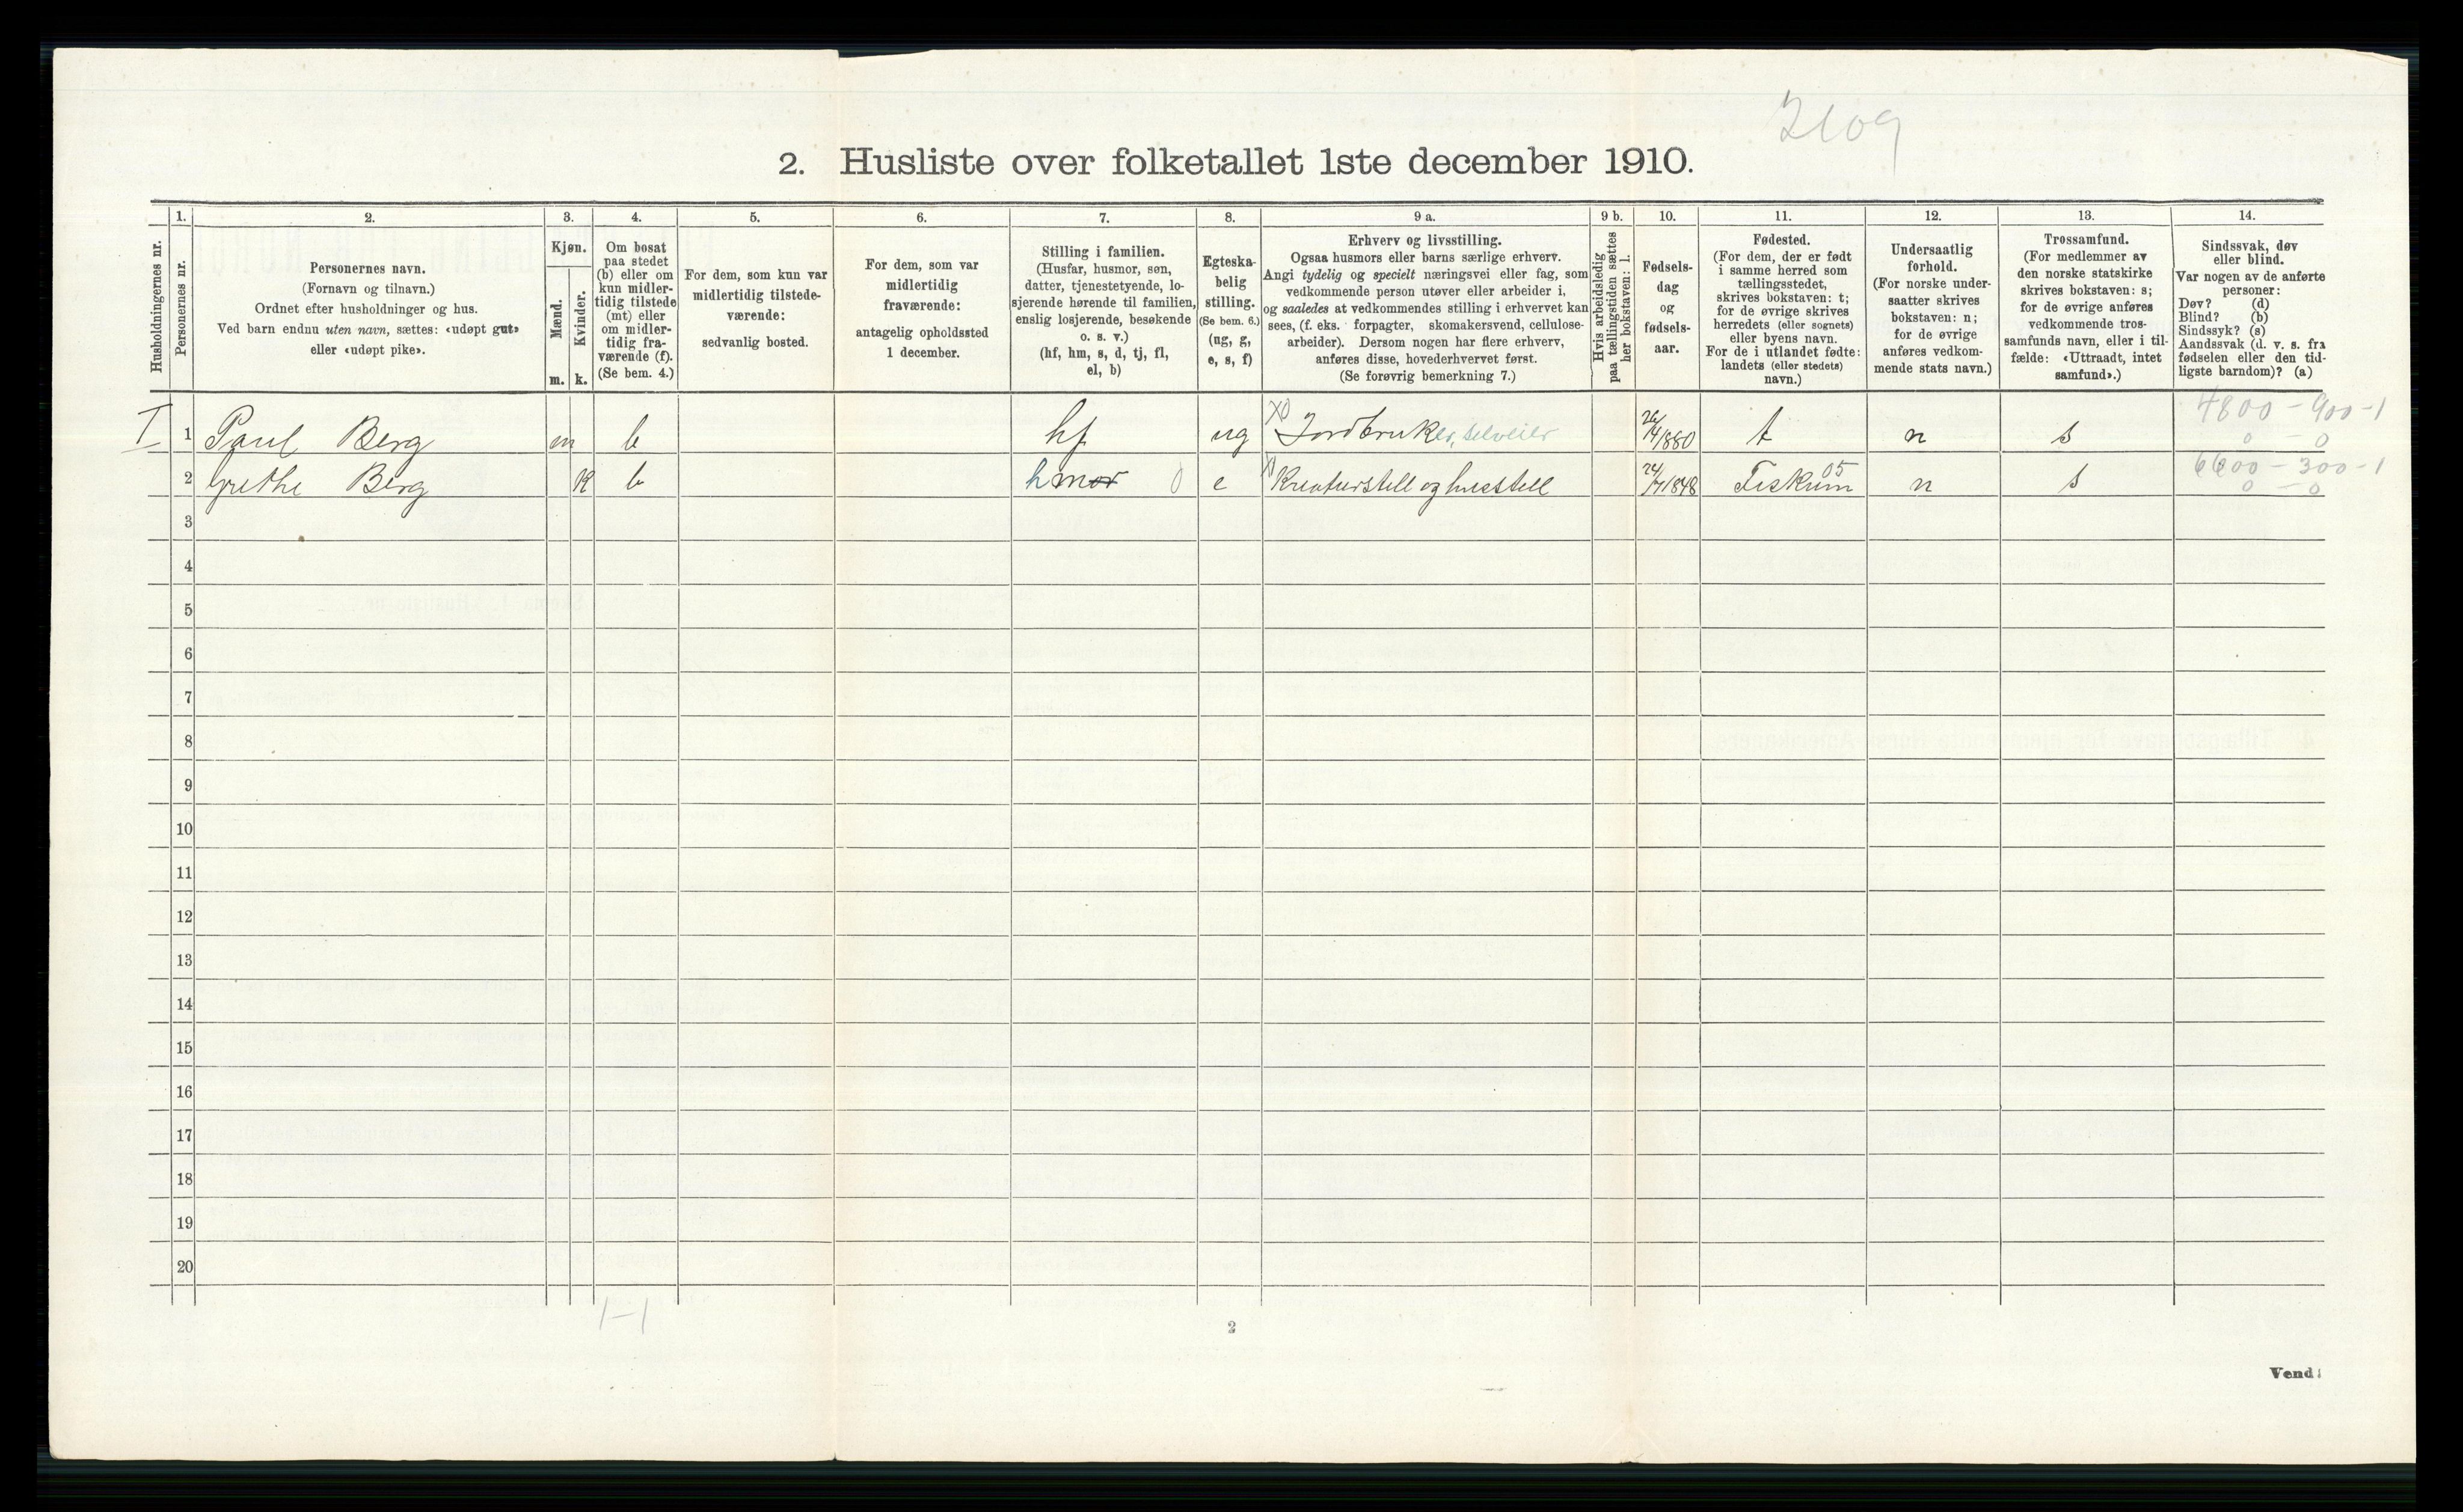 2109
2. Husliste over folketallet 1ste december 1910.
Husholdningernes nr.
1.
Personernes nr.
2.
Personernes navn.
(Fornavn og tilnavn.)
Ordnet efter husholdninger og hus.
Ved barn endnu uten navn, sættes: «udøpt gut»
eller «udøpt pike».
3.
Kjøn.
Mænd.
Kvinder.
m. k.
4.
Om bosat
paa stedet
(b) eller om
kun midler-
tidig tilstede
(mt) eller
om midler-
tidig fra-
værende (f).
(Se bem. 4.)
5.
For dem, som kun var
midlertidig tilstede-
værende:
sedvanlig bosted.
6.
For dem, som var
midlertidig
fraværende:
antagelig opholdssted
1 december.
7.
Stilling i familien.
(Husfar, husmor, søn,
datter, tjenestetyende, lo-
sjerende hørende til familien,
enslig losjerende, besøkende
o. s. v.)
(hf, hm, s, d, tj, fl,
el, b)
8.
Egteska-
belig
stilling.
(Se bem. 6.)
(ug, g,
e, s, f)
9 a.
Erhverv og livsstilling.
Ogsaa husmors eller barns særlige erhverv.
Angi tydelig og specielt næringsvei eller fag, som
vedkommende person utøver eller arbeider i,
og saaledes at vedkommendes stilling i erhvervet kan
sees, (f. eks. forpagter, skomakersvend, cellulose-
arbeider). Dersom nogen har flere erhverv,
anføres disse, hovederhvervet først.
(Se forøvrig bemerkning 7.)
9 b.
Hvis arbeidsledig
paa tællingstiden sættes
her bokstaven: l.
10.
Fødsels-
dag
og
fødsels-
aar.
11.
Fødested.
(For dem, der er født
i samme herred som
tællingsstedet,
skrives bokstaven: t;
for de øvrige skrives
herredets (eller sognets)
eller byens navn.
For de i utlandet fødte:
landets (eller stedets)
navn.)
12.
Undersaatlig
forhold.
(For norske under-
saatter skrives
bokstaven: n;
for de øvrige
anføres vedkom-
mende stats navn.)
13.
Trossamfund.
(For medlemmer av
den norske statskirke
skrives bokstaven: s;
for de øvrige anføres
vedkommende tros-
samfunds navn, eller i til-
fælde: «Uttraadt, intet
samfund».)
14.
Sindssvak, døv
eller blind.
Var nogen av de anførte
personer:
Døv? (d)
Blind? (b)
Sindssyk? (s)
Aandssvak (d. v. s. fra
fødselen eller den tid-
ligste barndom)? (a)
I 1 Paul Berg m b hf ug X0 Jordbruker, selveier t n s 4800 - 900 - 1
0 - 0
2 Grethe Berg K b hmor 0 e Kreaturstell og husstell Fiskum 05 n s 6600 - 300 - 1
0 - 0
3
4
5
6
7
8
9
10
11
12
13
14
15
16
17
18
19
20
1-1
2
Vend!